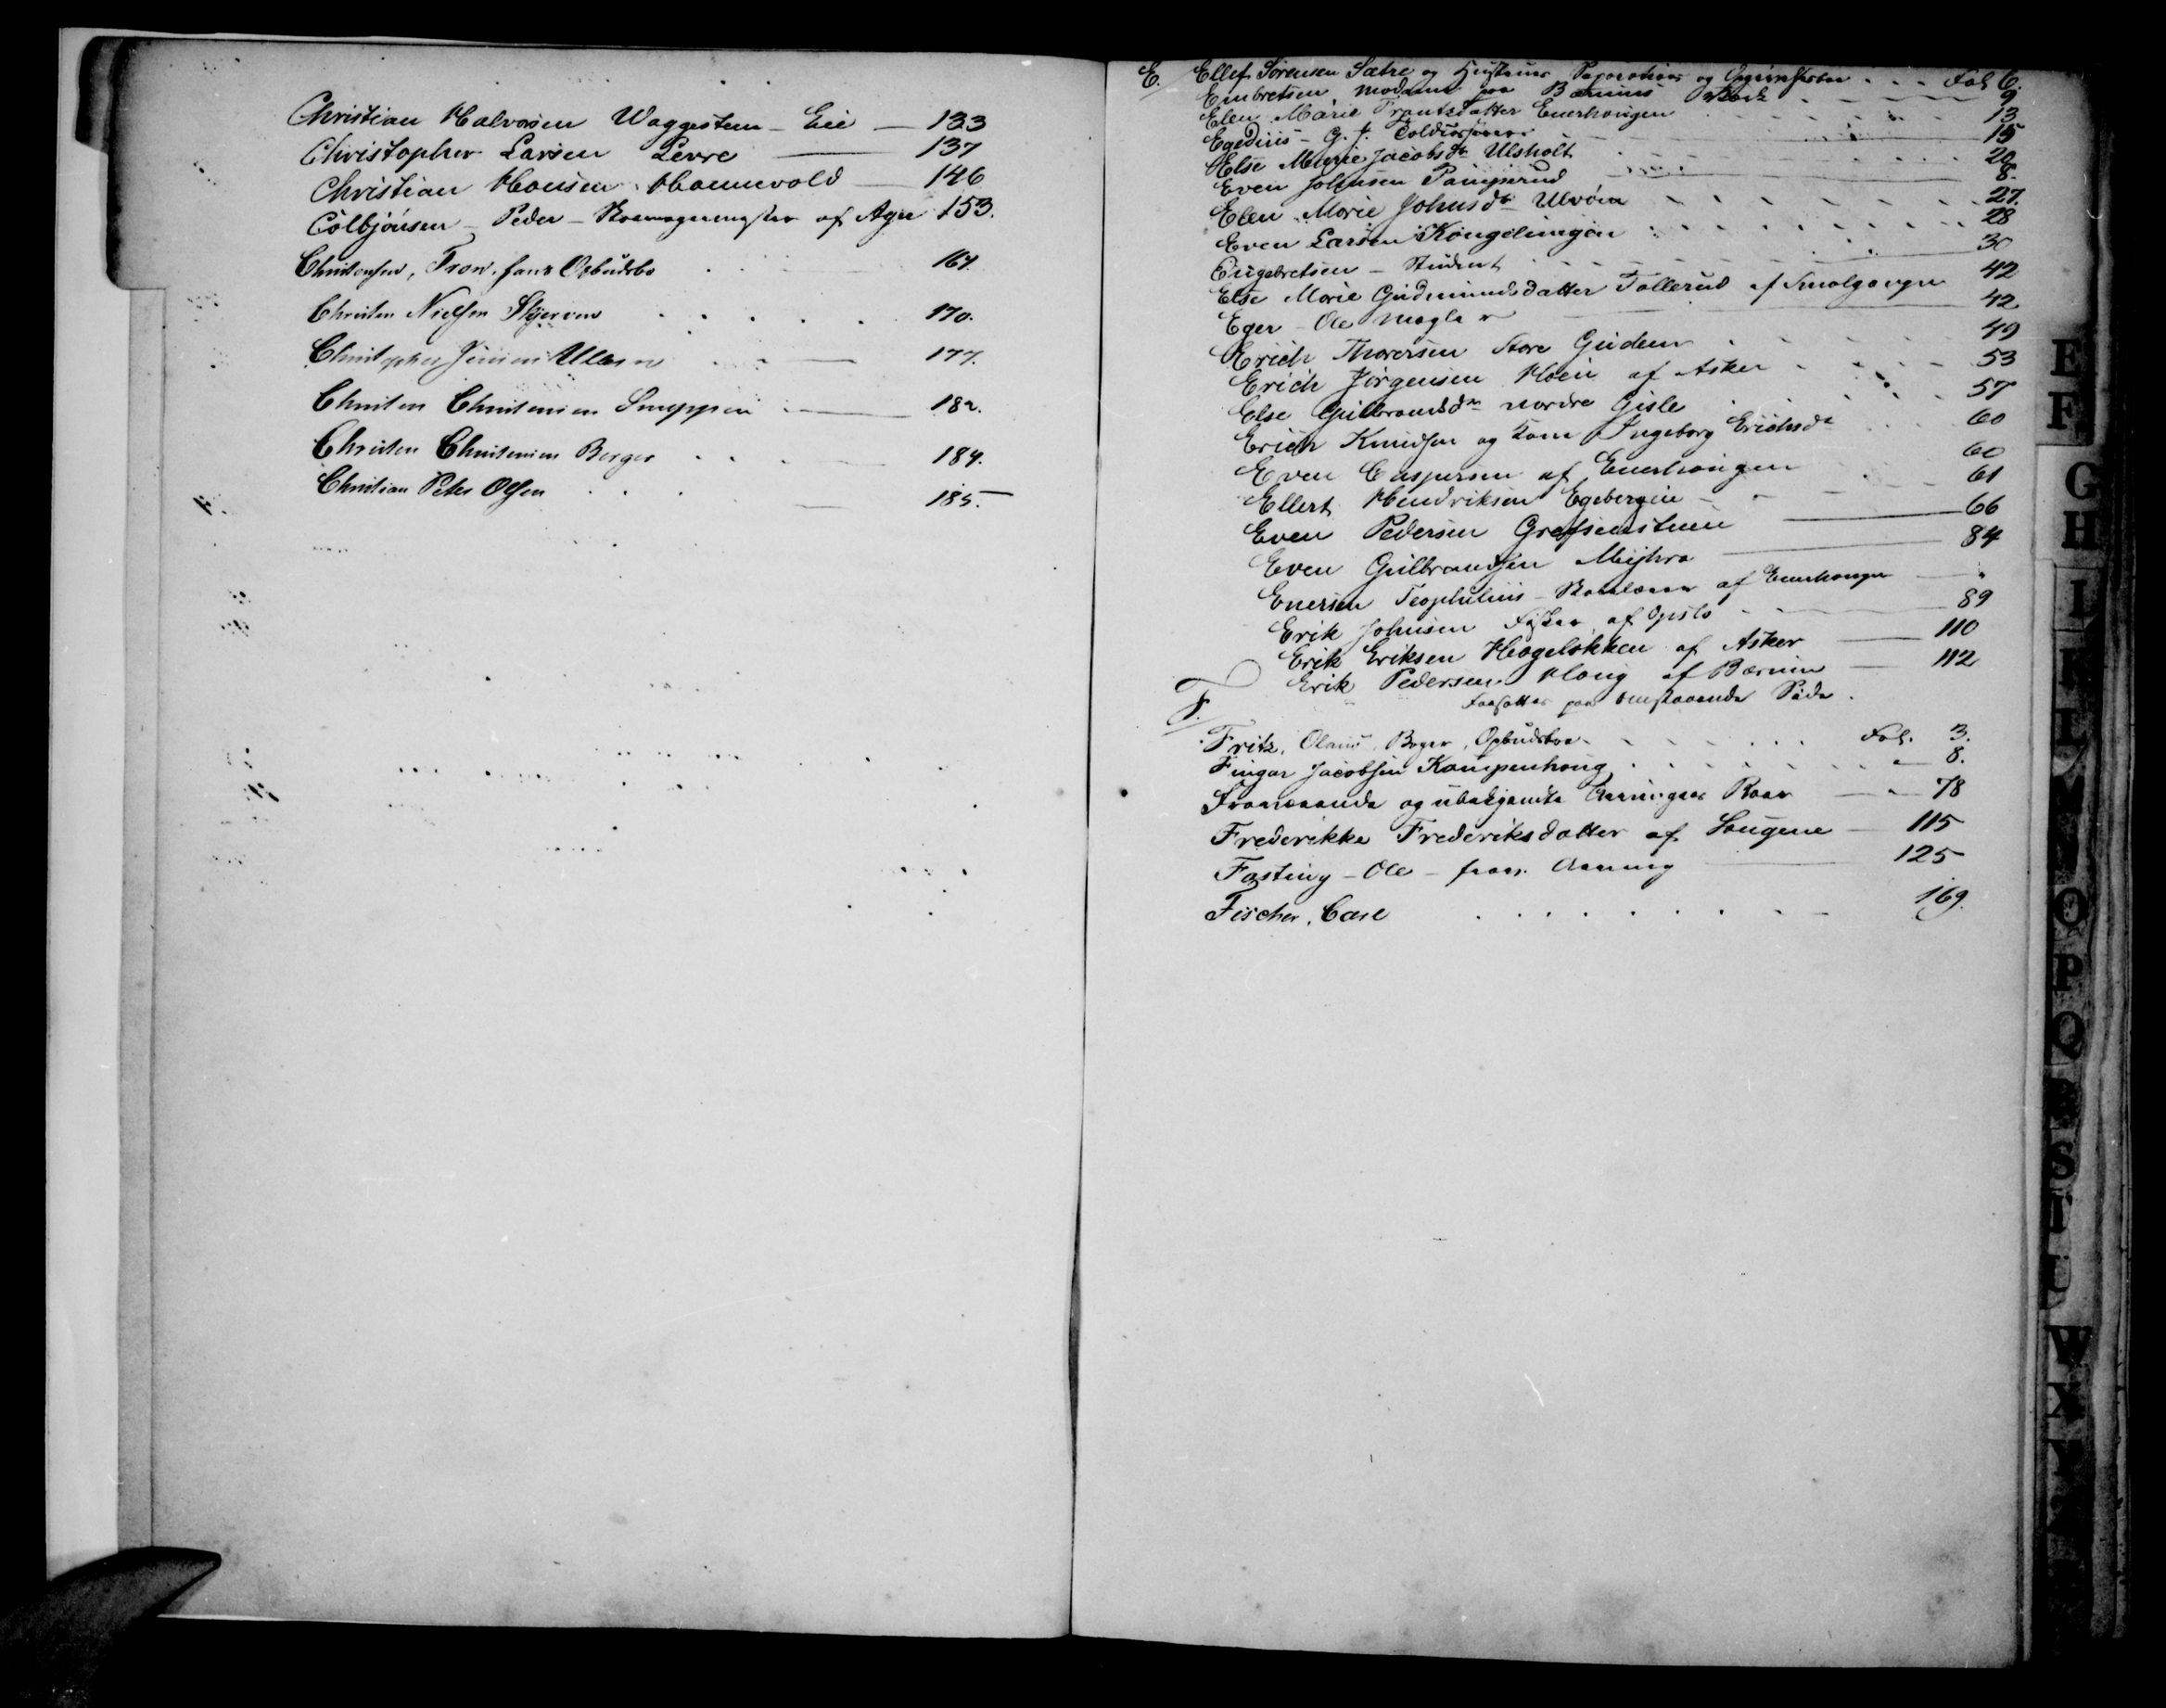 Christian Halvorsen Waggesteen - Eie - 133
Christopher Larsen Lerre - 137
Christian Hansen Hannevold - 146
Colbjörnsen - Peder - Skomagermester af Ager 153.
Christensen, Tron, hans Opbudsbo 164.
Christen Nielsen Skjerven 170.
Christopher Jensen Ullern 177.
Christen Christensen Snuppen 182.
Christen Christensen Berger 184.
Christian Peter Olsen 185
E. Ellef Sørensen Sætre og Hustrues Separations og Fol 6.
Embretsen Madame paa Bærums Værk 9
Elen Marie Frantzdatter Enerhaugen 13
Egedius - G. F. 15
Else Marie Jacobsdr Ulsholt 20
Even Johnsen Pamperud 8.
Elen Marie Johnsdr Ulvöen 27.
Even Larsen Kongelungen 28
Engebretsen - Student 30
Else Marie Gudmundsdatter Tollerud af Smalgangen 42
Eger - Ole Mægler 42
Erich Thorersen Store Gudem 49
Erich Jörgensen Hoen af Asker 53
Else Gulbrandsdr nordre Gisle 57
Erich Knudsen og Kone Ingeborg Erichsdr 60
Even Caspersen af Enerhaugen 60
Ellert Hendriksen Egebergeie 61
Even Pedersen Grefsenstuen 66
Even Gulbrandsen Mujhra 84
Enersen Teophilius - af Enerhaugen
Erik Johnsen Fisker af Opslo 89
Erik Eriksen Hagelökken af Asker 110
Erik Pedersen Haug af Bærum 112
Forsættes paa omstaaende Side.
F.
Fritz, Olaus, Bager, Opbudsboe Fol. 3.
Fingar Jacobsen Kampenhaug 8.
Fraværende og ubekjendte Arvinger Boer 78
Frederikke Frederiksdatter af Laugene 115
Fasting - Ole - frav. Arving 125
Fischer, Carl 169.
E
F
G
H
I
K
L
M
N
O
P
Q
R
S
T
U
W
X
Y